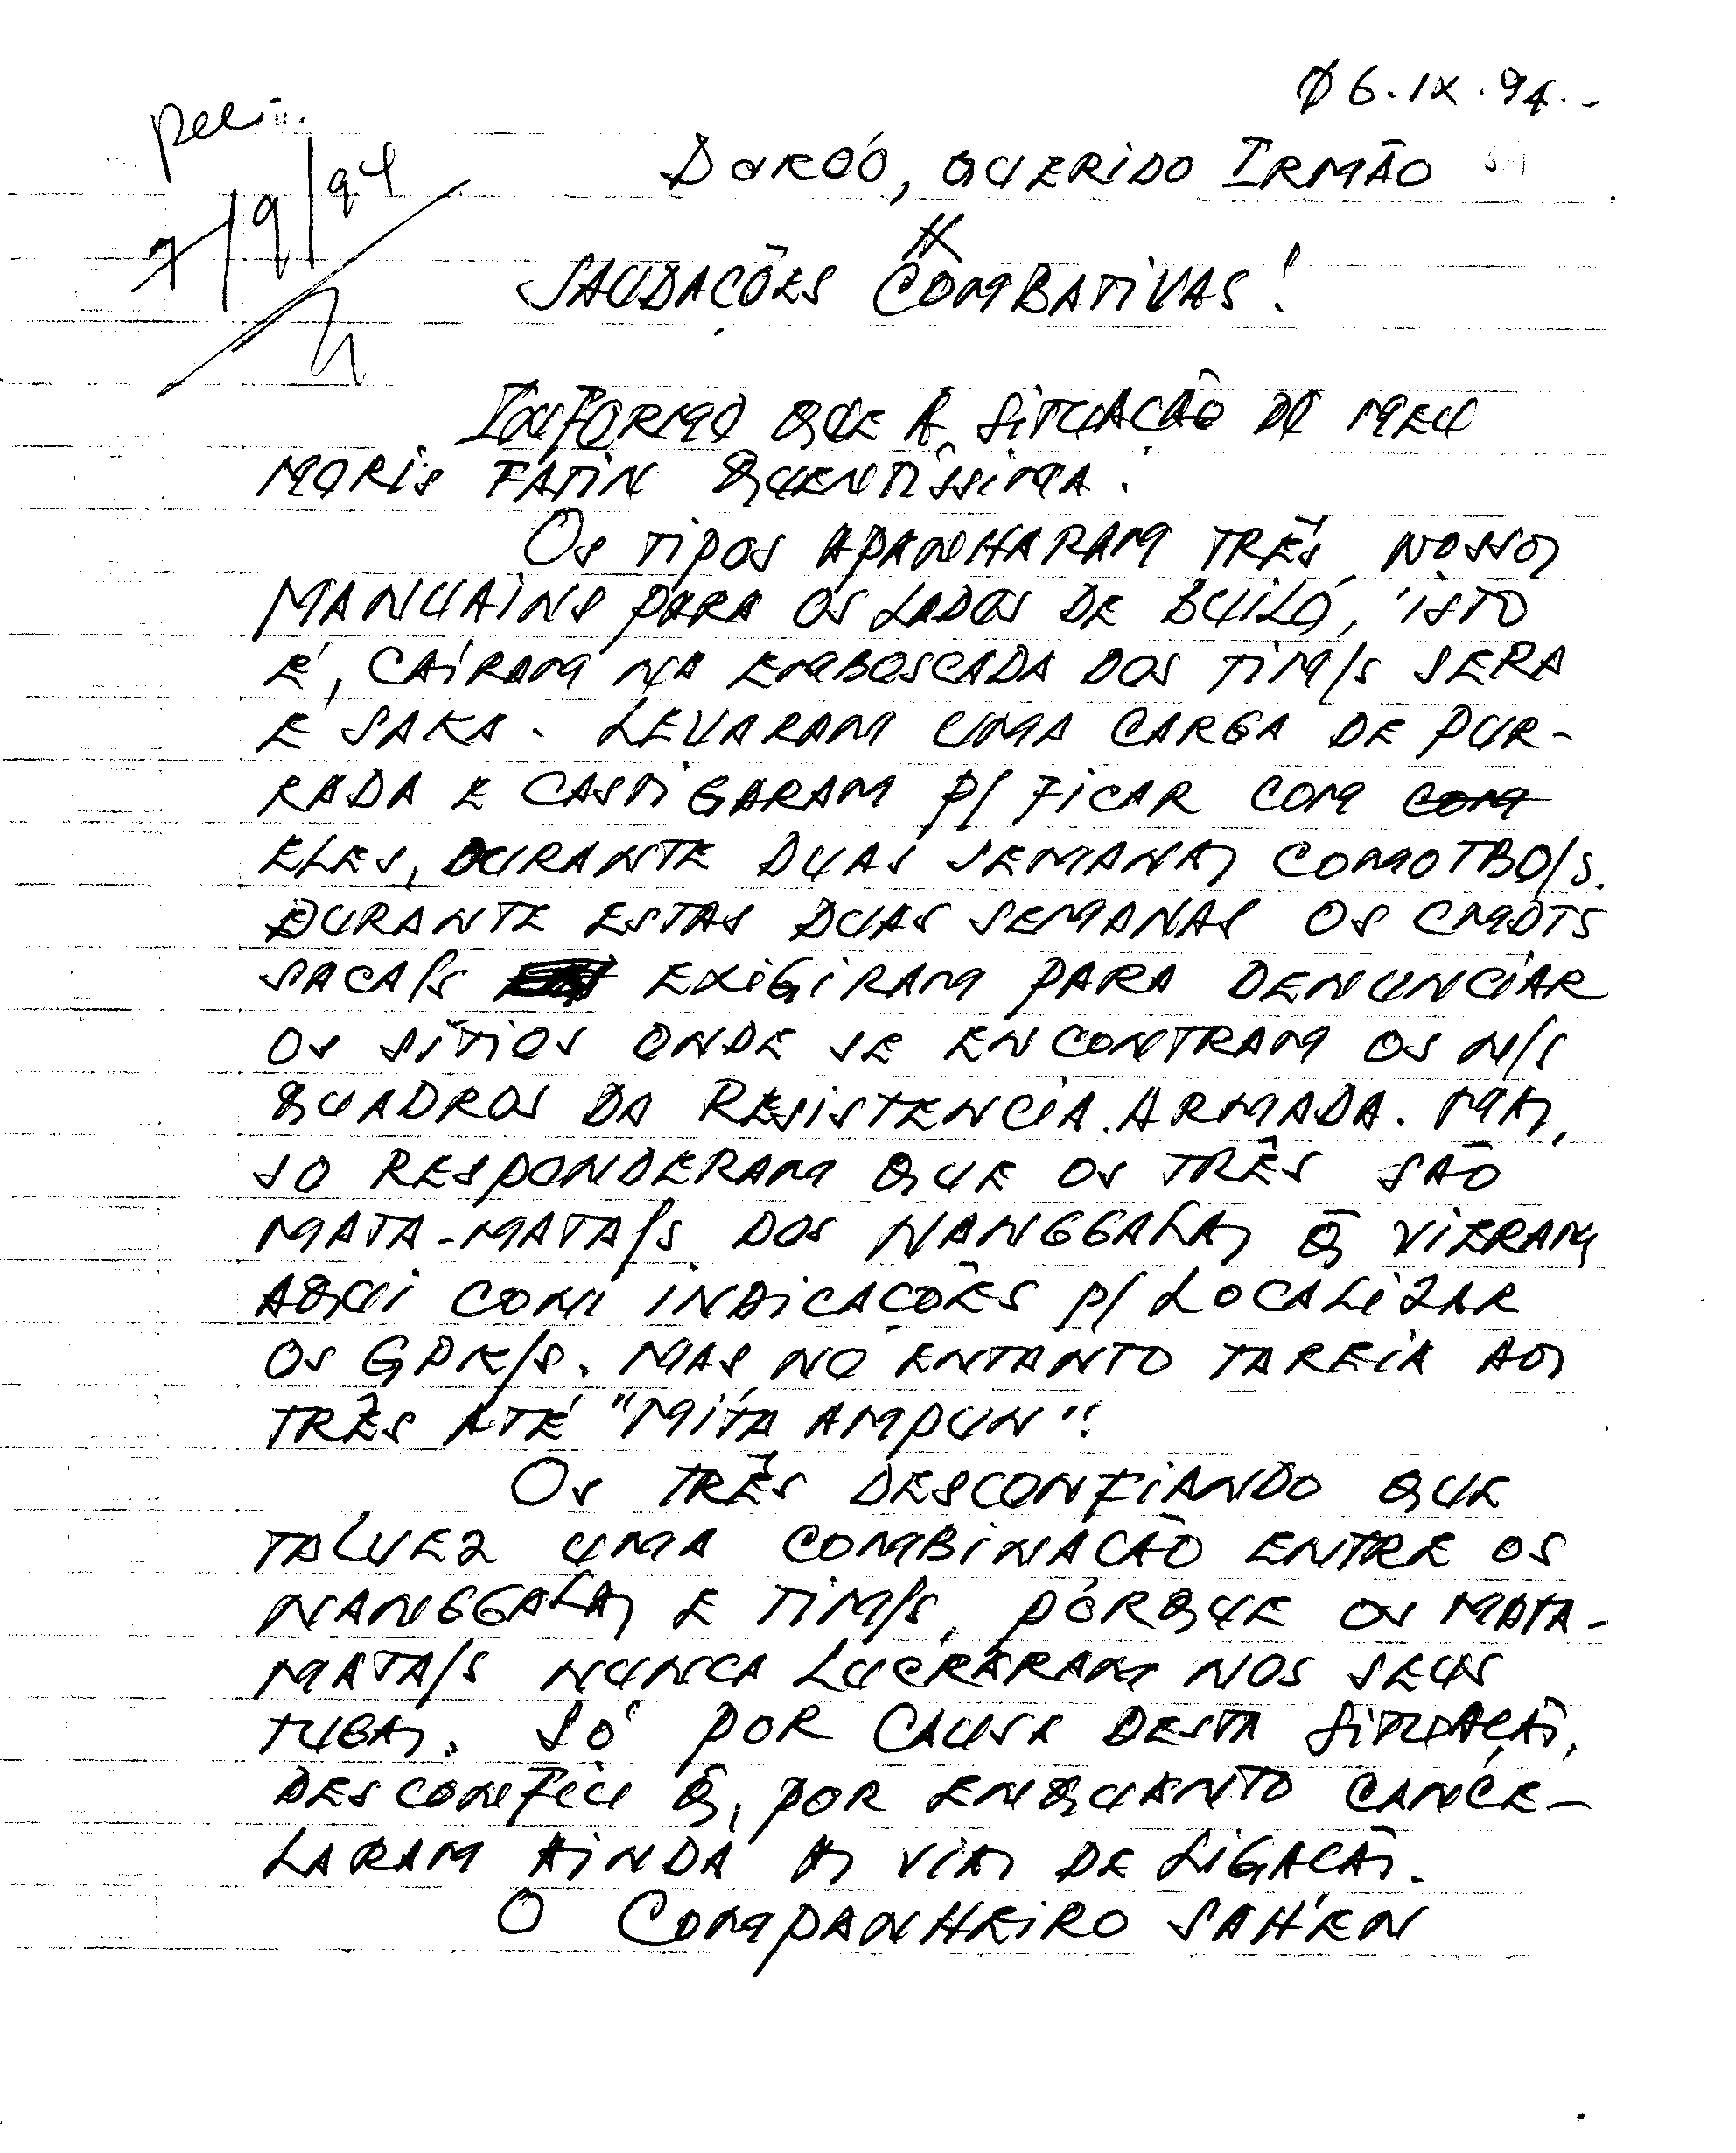 06.IX.94.-
7/9/94
QUERIDO IRMÃO
SAUDAÇÕES COMBATIVAS!
INFORMO QUE A SITUAÇÃO DE MEU
MORIS FATIN QUENTÍSSIMA.
OS TIPOS APANHARAM TRÊS NOSSOS
MANUAINS PARA OS LADOS DE BUILÓ, ISTO
É, CAÍRAM NA EMBOSCADA DOS TIM/S SERA
E SAKA. LEVARAM UMA CARGA DE PUR-
RADA E CASTIGARAM P/ FICAR COM COM
ELES, DURANTE DUAS SEMANAS COMO TBO/S.
DURANTE ESTAS DUAS SEMANAS OS CMDTS
SACA/S EXIGIRAM PARA DENUNCIAR
OS SÍTIOS ONDE SE ENCONTRAM OS N/S
QUADROS DA RESISTENCIA ARMADA. MAS,
SO RESPONDERAM QUE OS TRÊS SÃO
MATA-MATA/S DOS NANGGALAS Q̃ VIERAM
AQUI COM INDICAÇÕES P/ LOCALIZAR
OS GPK/S. MAS NO ENTANTO TAREIA AOS
TRÊS ATÉ "MÍTA AMPUN"!
OS TRÊS DESCONFIANDO QUE
TALVEZ UMA COMBINAÇÃO ENTRE OS
NANGGALAS E TIM/S, PÓRQUE OS MATA-
MATA/S NUNCA LUCRARAM NOS SEUS
TUGAS. SÓ POR CAUSA DESTA SITUAÇÃO,
DESCONFIEI Q̃, POR ENQUANTO CANCE-
LARAM AINDA AS VIAS DE LIGAÇÃO.
O COMPANHEIRO SAHE'N